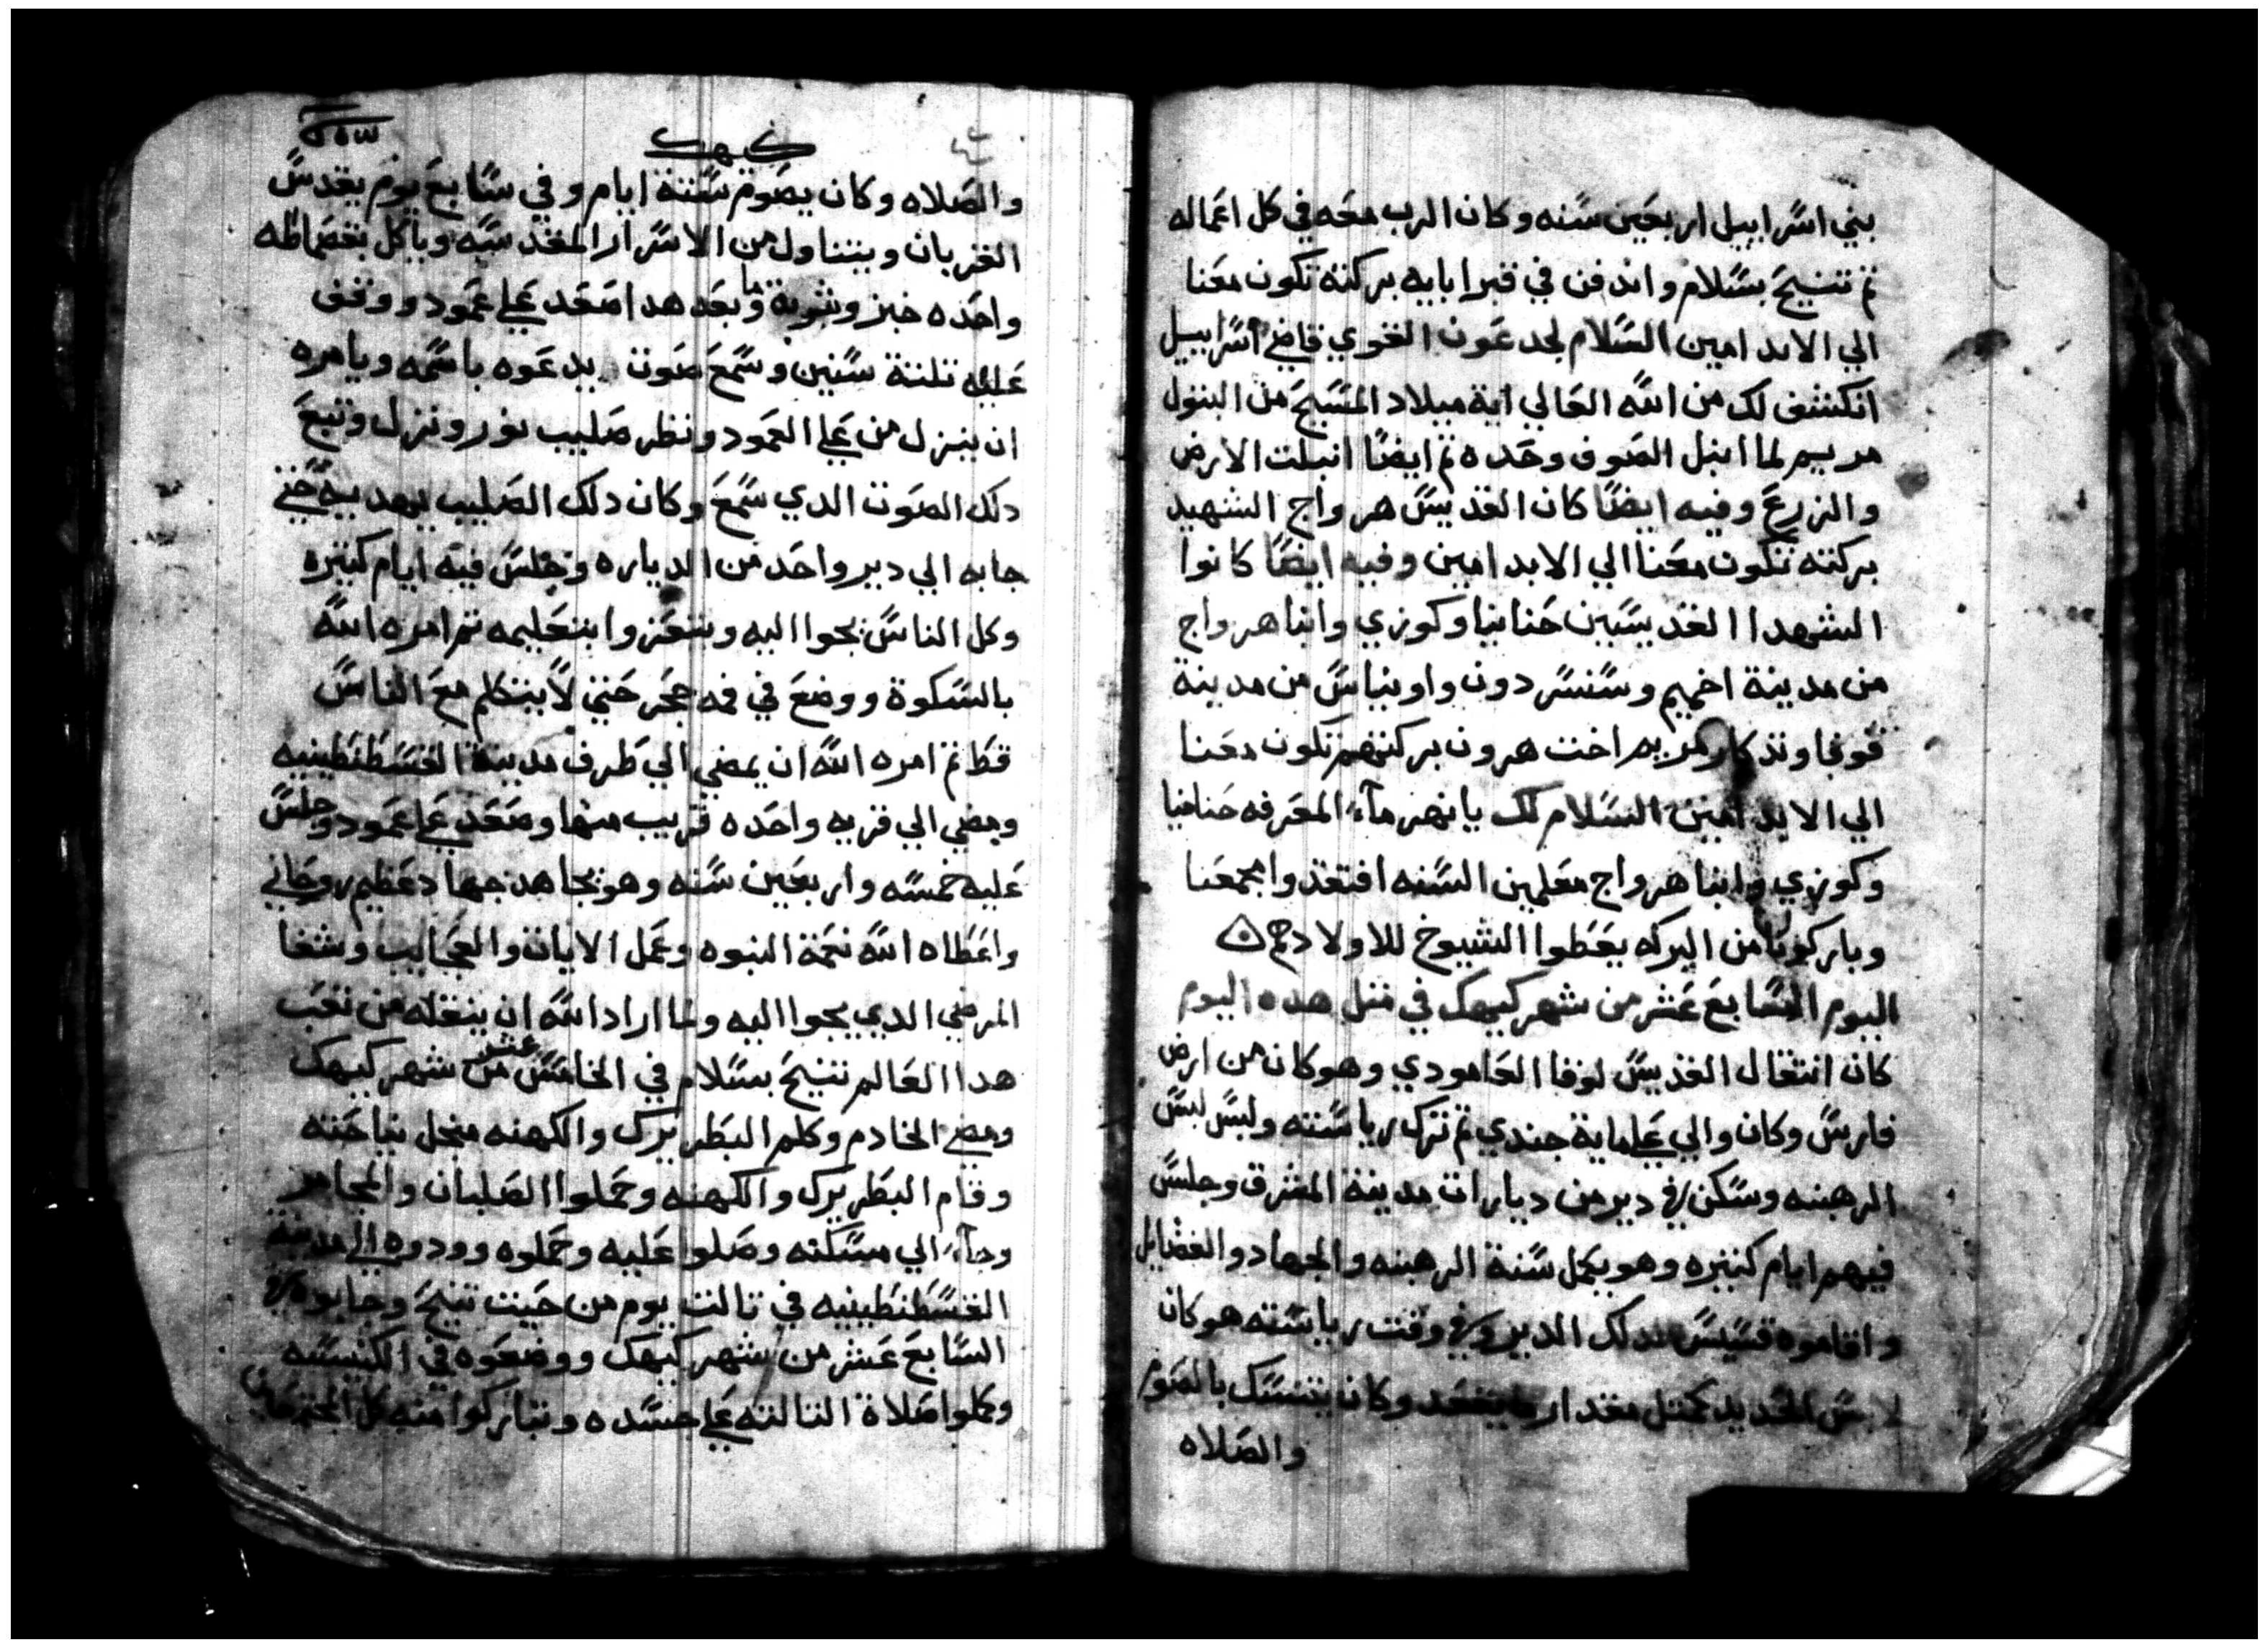 بني اسراييل اربعين سنه وكان الرب معه في كل اعماله
تم تنيح بسلام واندفن في قبر ابايه بركته تكون معنا
الي الابد امين السلام لجدعون القوي قاضي اسراييل
انكشف لك من الله العالي اية ميلاد المسيح من البتول
مريم لما ابتل الصوف وحده تم ايضا اتبلت الارض
والزرع وفيه ايضا كان القديس هرواج الشهيد
بركته تكون معنا الي الابد امين وفيه ايضا كانوا
الشهدا القديسين حنانيا وكوزي وانبا هرواج
من مدينة اخميم وسنسر دون واونياس من مدينة
قوفجا وتذكار مريم اخت هرون بركتهم تكون معنا
الي الابد امين السلام لك يا نهر مآء المعرفه حنانيا
وكوزي وانبا هرواج معلمين السنه افتقدوا مجمعنا
وباركونا من البركه يعطوا الشيوخ للاولاد
اليوم السابع عشر من شهر كيهك في متل هده اليوم
كان انتقال القديس لوقا العامودي وهو كان من ارض
فارس وكان والي علي ماية جندي تم ترك رياسته ولبس لبس
الرهبنه وسكن في دير من ديارات مدينة المشرق وجلس
فيهم ايام كتيره وهو يكمل سنة الرهبنه والجهاد والفضايل
واقاموه قسيس لدلك الدير وفي وقت رياسته هو كان
لابس الحديد كمتل مقدار ما يقعد وكان يتنسك بالصوم
والصلاه
كيهك
والصلاه وكان يصوم ستة ايام وفي سابع يوم يقدس
القربان ويتناول من الاسرار المقدسه وياكل بقصماطه
واحده خبز وشربة ما وبعد هدا صعد علي عمود ووقف
عليه تلتة سنين وسمع صوت يدعوه باسمه ويامره
ان ينزل من علي العمود ونظر صليب نور ونزل وتبع
دلك الصوت الدي سمع وكان دلك الصليب يهديه حتي
جابه الي دير واحد من الدياره وجلس فيه ايام كتيره
وكل الناس يجوا اليه ويتعزوا بتعليمه تم امره الله
بالسكوة ووضع في فمه حجر حتي لا يتكلم مع الناس
قط تم امره الله ان يمضي الي طرف مدينة القسطنطينيه
ومضي الي قريه واحده قريب منها وصعد علي عمود وجلس
عليه خمسه واربعين سنه وهو يجاهد جهاد عظيم روحاني
واعطاه الله نعمة النبوه وعمل الايات والعجايب وشفا
المرضي الدي يجوا اليه ولما اراد الله ان ينقله من تعب
هدا العالم تنيح بسلام في الخامس عشر من شهر كيهك
ومضي الخادم وكلم البطريرك والكهنه منجل نياحته
وقام البطريرك والكهنه وحملوا الصلبان والمجامر
وجآء الي مسكنه وصلوا عليه وحملوه وودوه الي مدينة
القسطنطينيه في تالت يوم من حيت تنيح وجابوه في
السابع عشر من شهر كيهك ووضعوه في الكنيسه
وكملوا صلاة التالته علي جسده وتباركوا منه كل المجتمعين